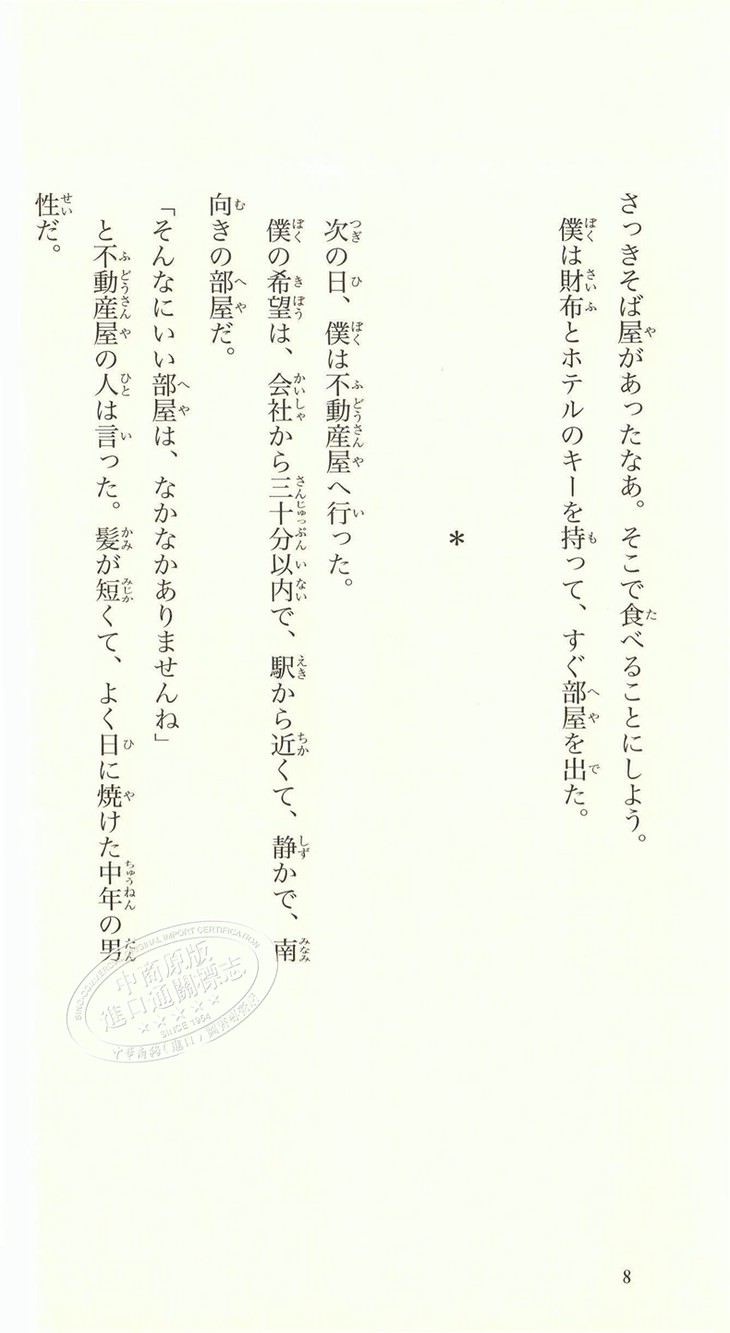 さっきそば屋があったなあ。そこで食べることにしよう。
僕は財布とホテルのキーを持って、すぐ部屋を出た。
*
次の日、僕は不動産屋へ行った。
僕の希望は、会社から三十分以内で、駅から近くて、静かで、南
向きの部屋だ。
「そんなにいい部屋は、なかなかありませんね」
と不動産屋の人は言った。髪が短くて、よく日に焼けた中年の男
性だ。
8
SINO-COMMERCIAL ORIGINAL IMPORT CERTIFICATION
中商原版
進口通關標志
SINCE 1954